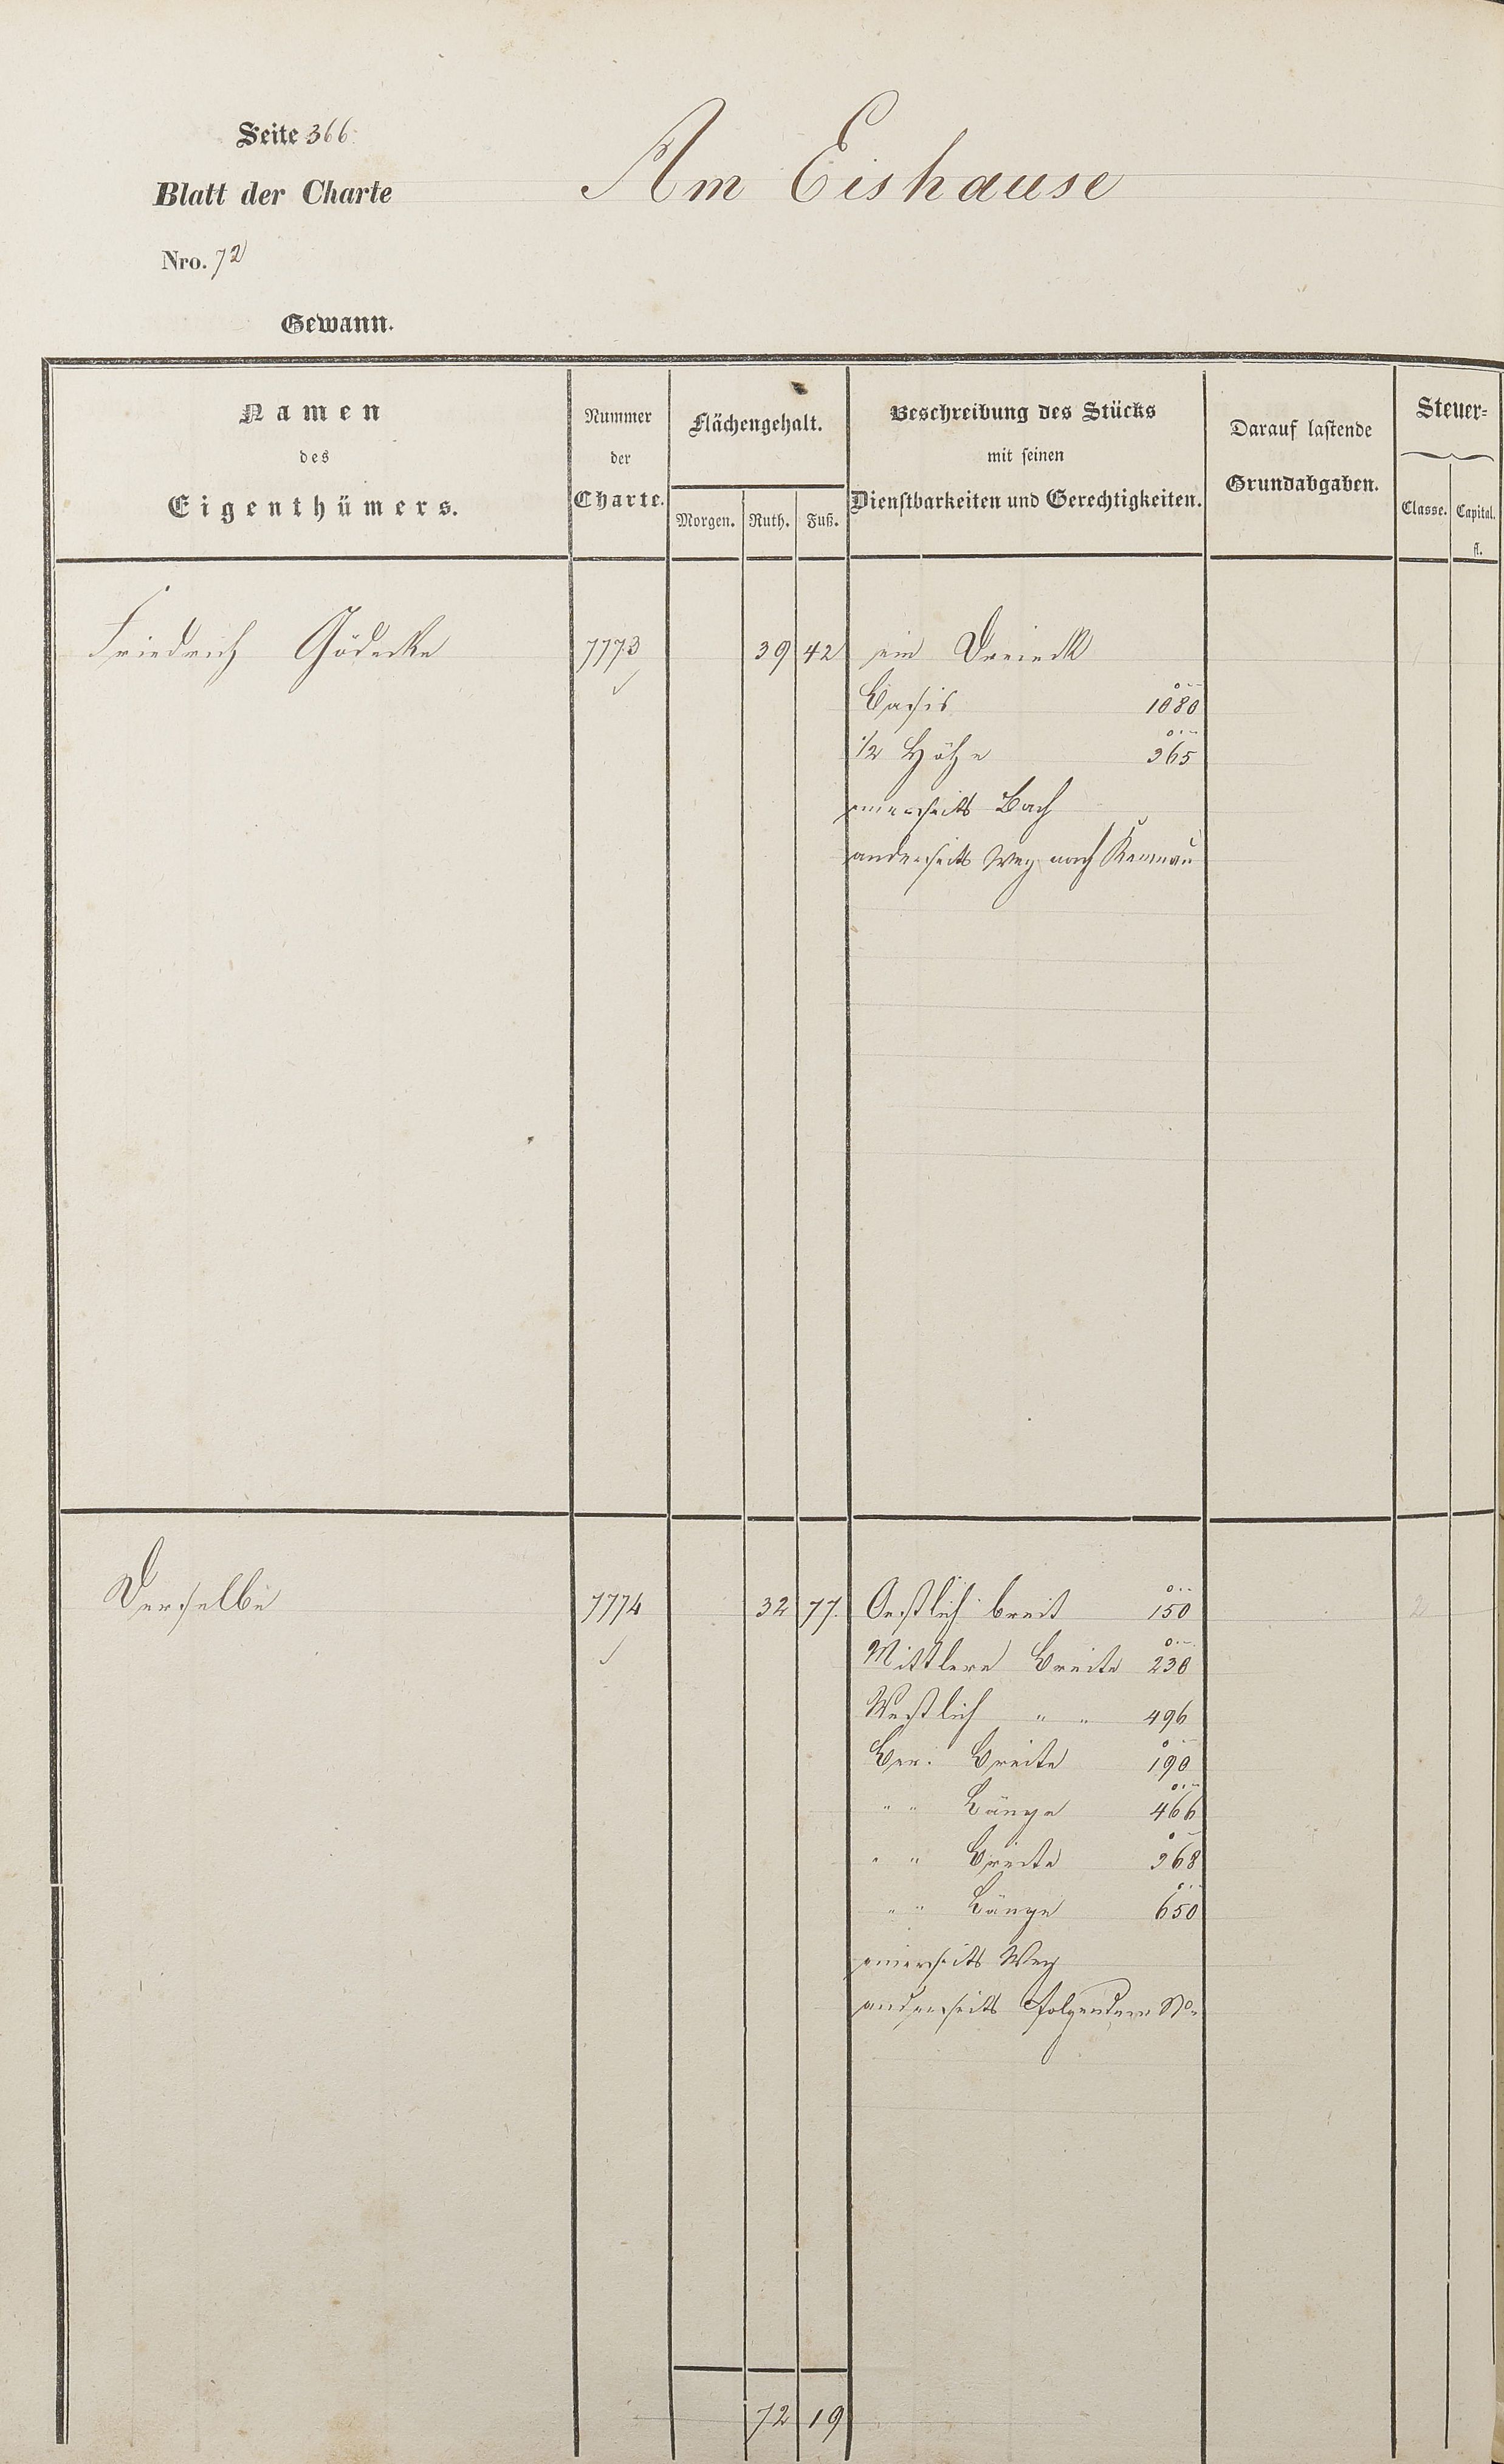 Seite 366.
Am Eishause
Blatt der Charte
Nro. 72
Gewann.
Namen des Eigenthümers.
Nummer der Charte.
Flächengehalt.
Morgen. Ruth. Fuß.
Beschreibung des Stücks mit seinen Dienstbarkeiten und Gerechtigkeiten.
Darauf lastende Grundabgaben.
Steuer=
Classe. Capital.
fl.
Friedrich Gödecke 7773 39 42 ein Dreieck
Basis 1080
1/2 Höhe 365
einerseits Bach
anderseits Weg nach
Derselbe 7774 32 77. Oestlich breit 150
Mittlere Breite 230
Westlich " " 496
Ber. Breite 190
" " Länge 466
" " Breite 368
" " Länge 650
einerseits Weg
anderseits folgender No.
72 19